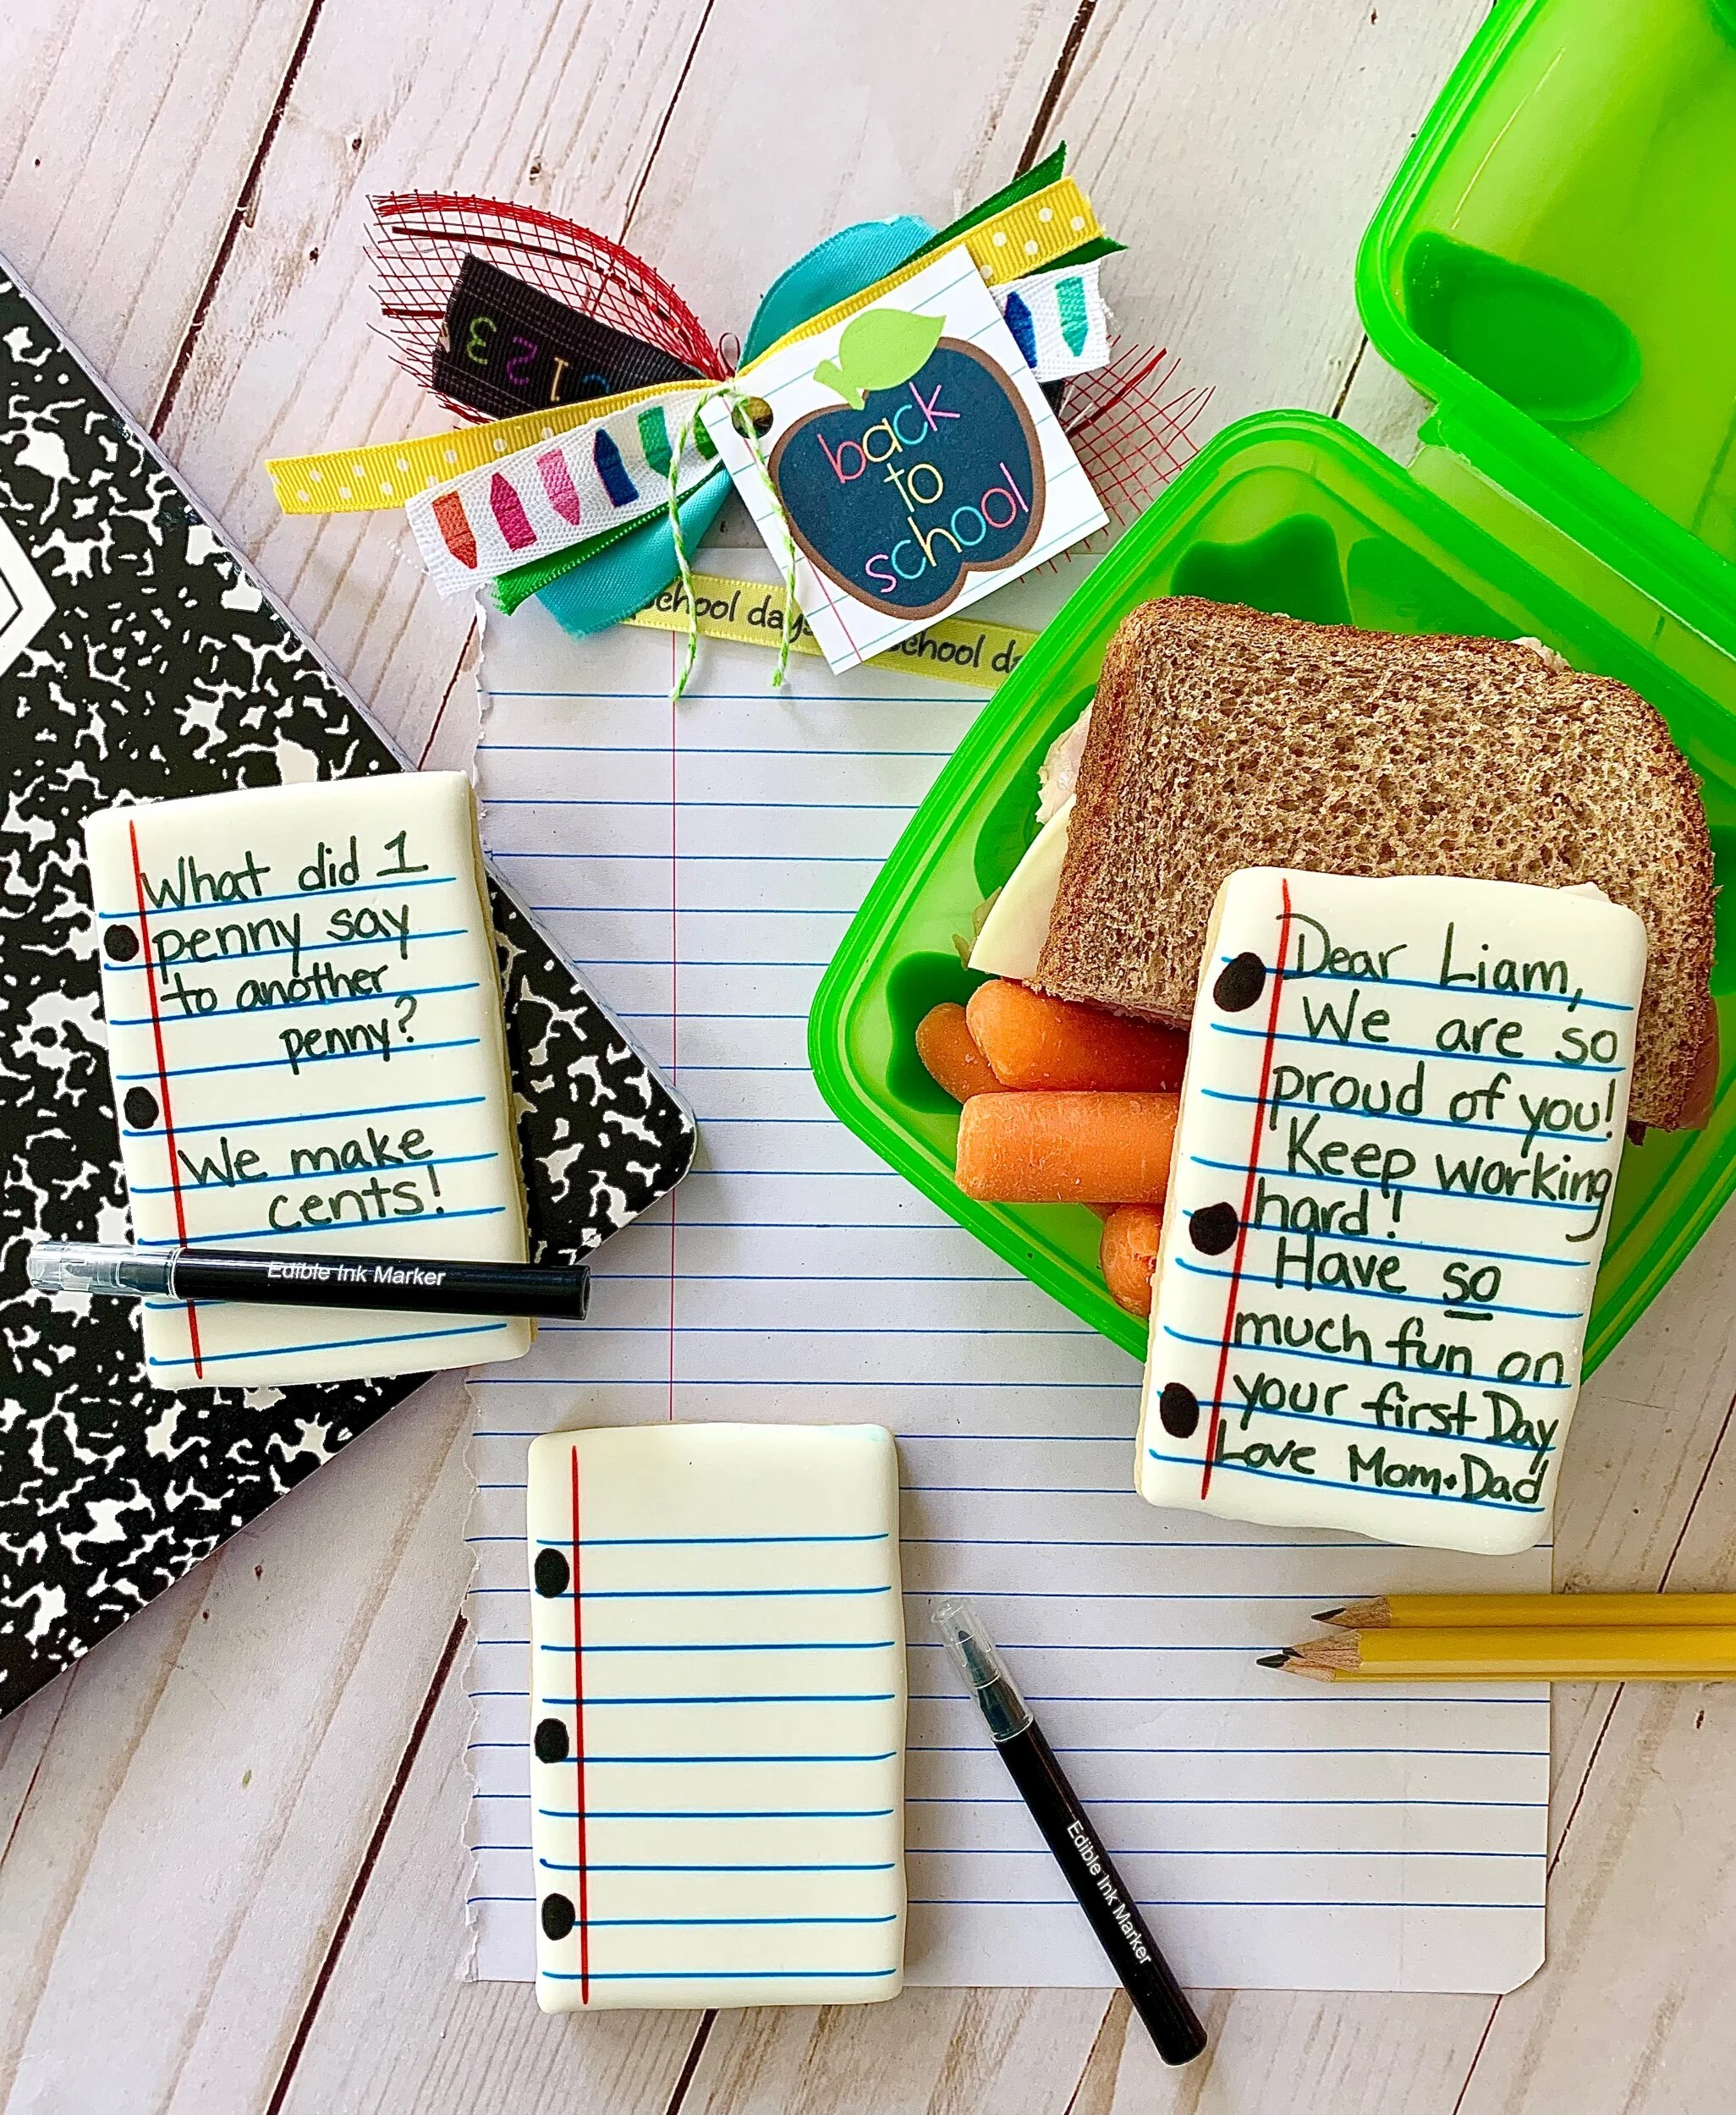 3 2 1
back
to
school
school days
school da
What did 1
penny say
to another
penny?
We make
cents!
Edible Ink Marker
Dear Liam,
We are so
proud of you!
Keep working
hard!
Have so
much fun on
your first Day
Love Mom+Dad
Edible Ink Marker